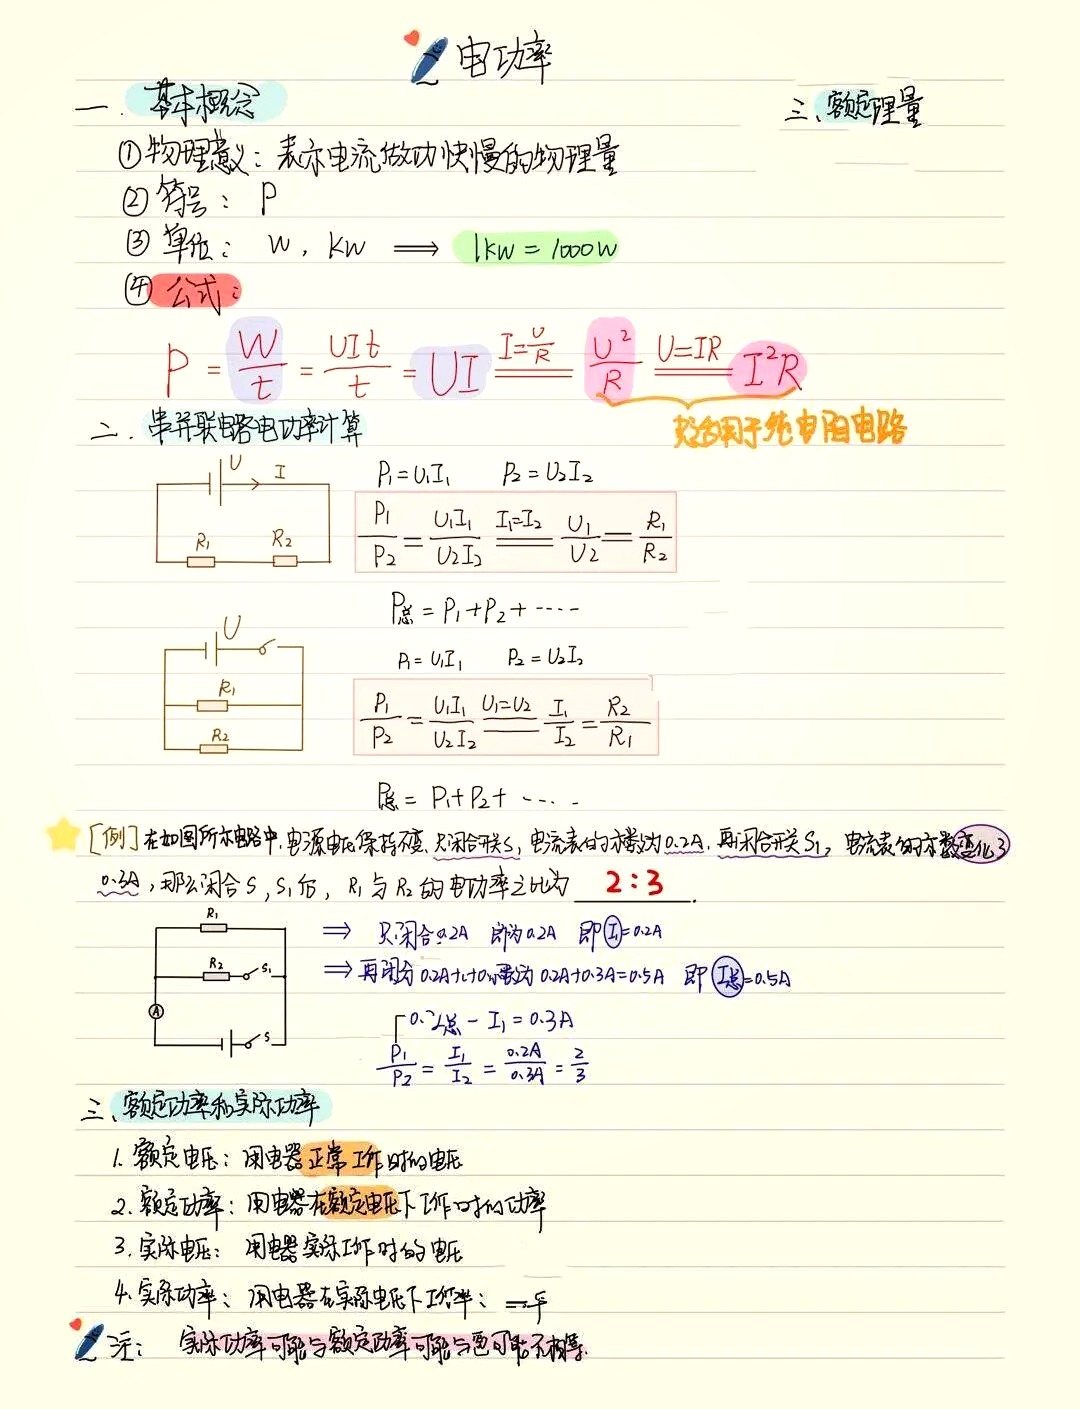 电功率
一. 基本概念
三、额定理量
①物理意义：表示电流做功快慢的物理量
②符号： P
③单位： W , KW ⟹ 1KW = 1000W
④公式：
P = W/t = UIt/t = UI I=U/R U²/R U=IR I²R
只适用于纯电阻电路
二. 串并联电路电功率计算
U I
R₁ R₂
P₁=U₁I₁ P₂=U₂I₂
P₁/P₂ = U₁I₁/U₂I₂ I₁=I₂ U₁/U₂ = R₁/R₂
P总 = P₁+P₂+ ····
U
R₁
R₂
P₁=U₁I₁ P₂=U₂I₂
P₁/P₂ = U₁I₁/U₂I₂ U₁=U₂ I₁/I₂ = R₂/R₁
P总 = P₁+P₂+ ····
[例] 在如图所示电路中，电源电压保持不变，只闭合开关S，电流表的示数为0.2A，再闭合开关S₁，电流表的示数变化了
0.3A，那么闭合S，S₁后，R₁与R₂的电功率之比为 2:3 .
R₁
R₂ S₁
A
S
⟹ 只闭合 0.2A 即为0.2A 即I₁=0.2A
⟹ 再闭合 0.2A 为 0.2A+0.3A=0.5A 即 I总=0.5A
总 - I₁ = 0.3A
P₁/P₂ = I₁/I₂ = 0.2A/0.3A = 2/3
三、额定功率和实际功率
1. 额定电压：用电器正常工作时的电压
2. 额定功率：用电器在额定电压下工作时的功率
3. 实际电压：用电器实际工作时的电压
4. 实际功率：用电器在实际电压下工作
注： 实际功率可能与额定功率可能与 可能不相等.